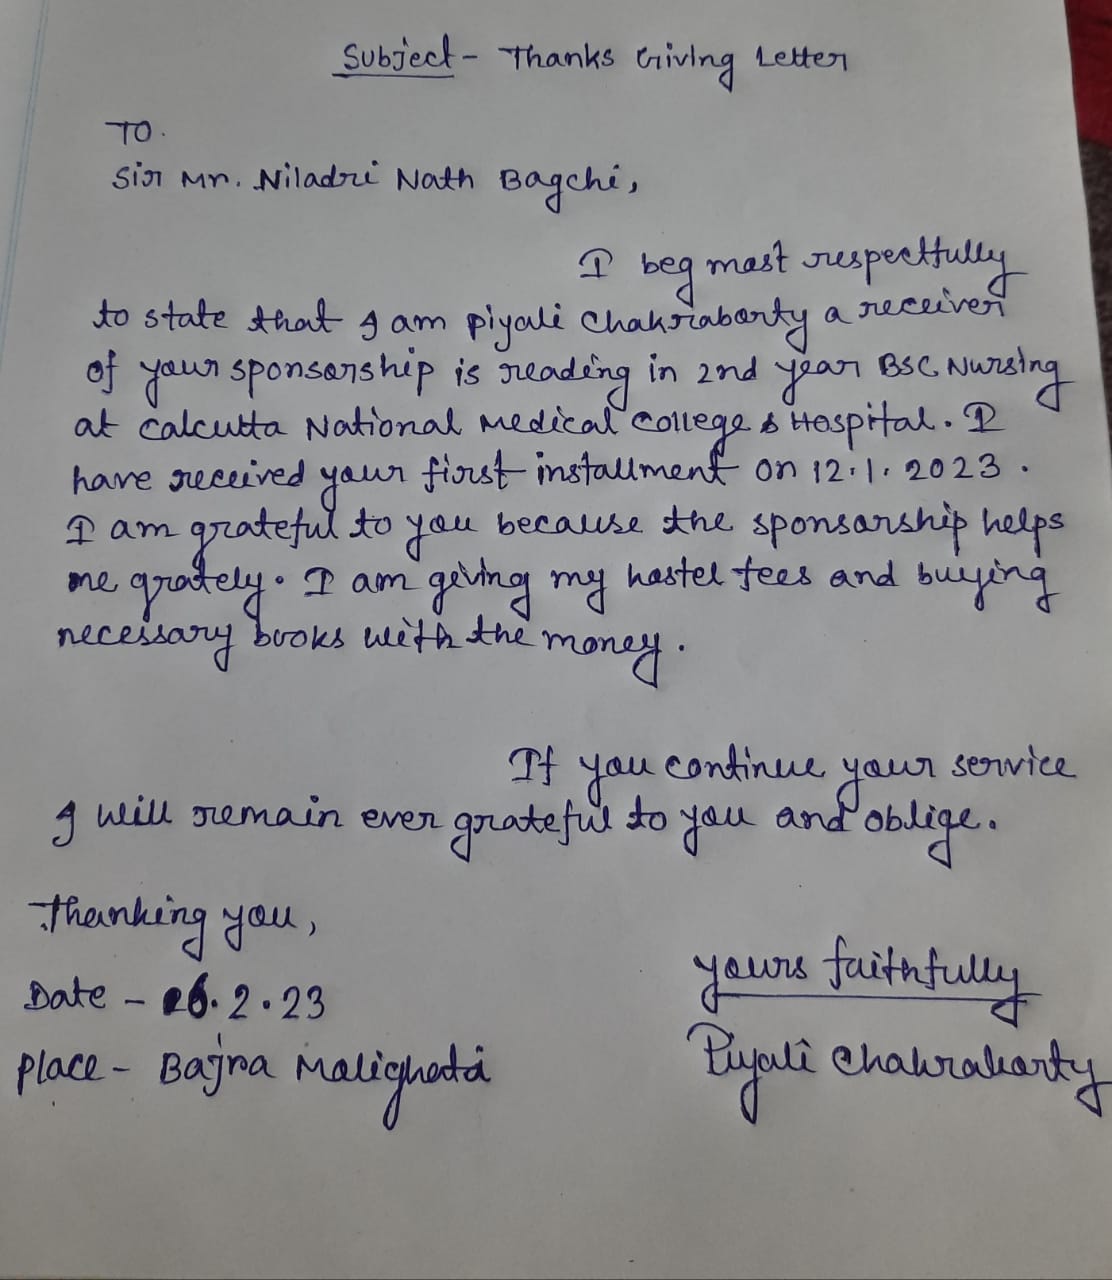 Subject - Thanks Giving Letter
To.
Sir Mr. Niladri Nath Bagchi,
I beg most respectfully
to state that I am Piyali Chakraborty a receiver
of your sponsorship is reading in 2nd year BSC Nursing
at Calcutta National Medical College & Hospital. I
have received your first installment on 12.1.2023.
I am grateful to you because the sponsorship helps
me grately. I am giving my hostel fees and buying
necessary books with the money.
If you continue your service
I will remain ever grateful to you and oblige.
Thanking you,
Date - 26.2.23
yours faithfully
Place - Bajna Malighata
Piyali Chakraborty